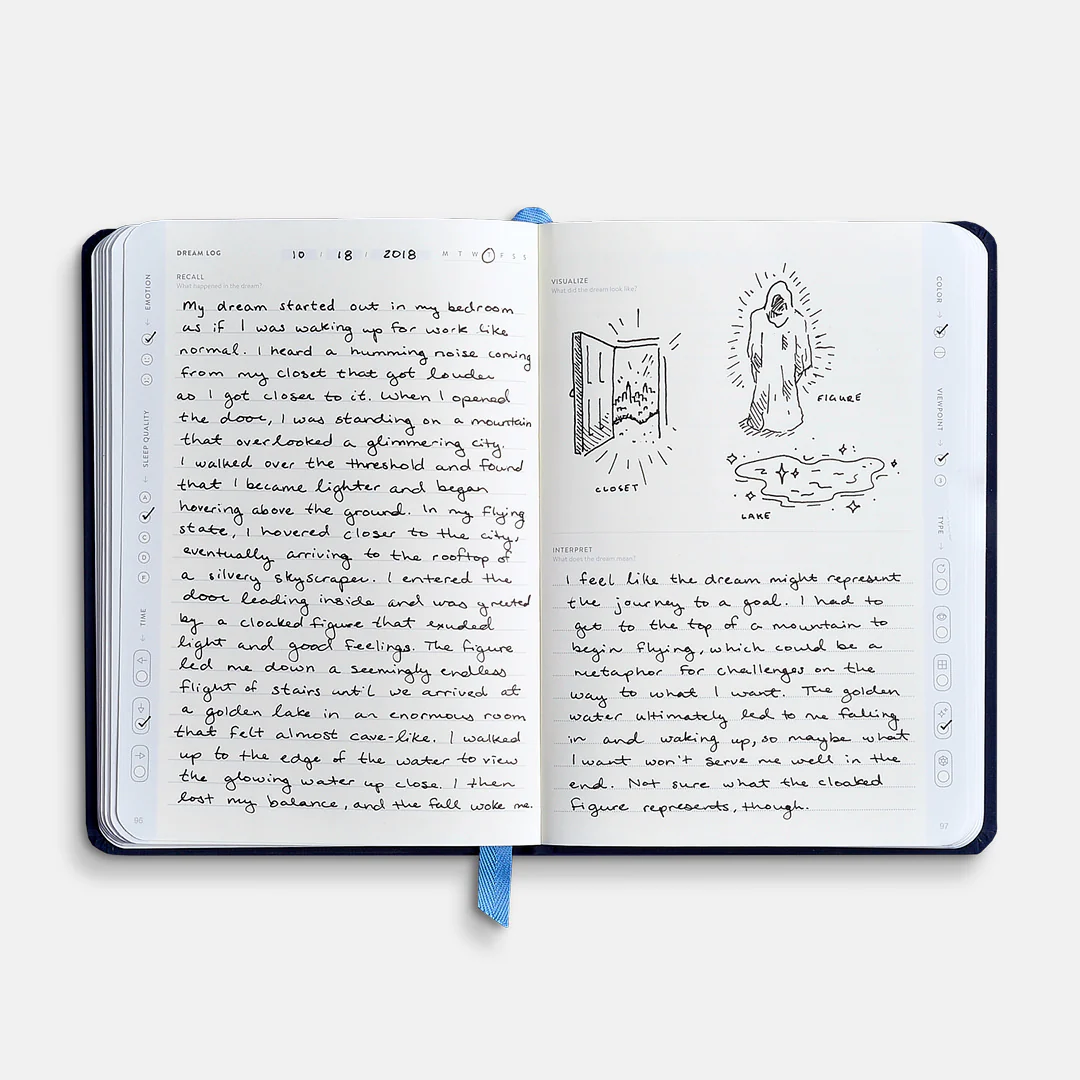 DREAM LOG
10 / 18 / 2018
M T W T F S S
RECALL
What happened in the dream?
My dream started out in my bedroom
as if I was waking up for work like
normal. I heard a humming noise coming
from my closet that got louder
as I got closer to it. When I opened
the door, I was standing on a mountain
that overlooked a glimmering city.
I walked over the threshold and found
that I became lighter and began
hovering above the ground. In my flying
state, I hovered closer to the city,
eventually arriving to the rooftop of
a silvery skyscraper. I entered the
door leading inside and was greeted
by a cloaked figure that exuded
light and good feelings. The figure
led me down a seemingly endless
flight of stairs until we arrived at
a golden lake in an enormous room
that felt almost cave-like. I walked
up to the edge of the water to view
the glowing water up close. I then
lost my balance, and the fall woke me.
EMOTION
SLEEP QUALITY
A
C
D
F
TIME
96
VISUALIZE
What did the dream look like?
CLOSET
FIGURE
LAKE
INTERPRET
What does the dream mean?
I feel like the dream might represent
the journey to a goal. I had to
get to the top of a mountain to
begin flying, which could be a
metaphor for challenges on the
way to what I want. The golden
water ultimately led to me falling
in and waking up, so maybe what
I want won't serve me well in the
end. Not sure what the cloaked
figure represents, though.
COLOR
VIEWPOINT
3
TYPE
97